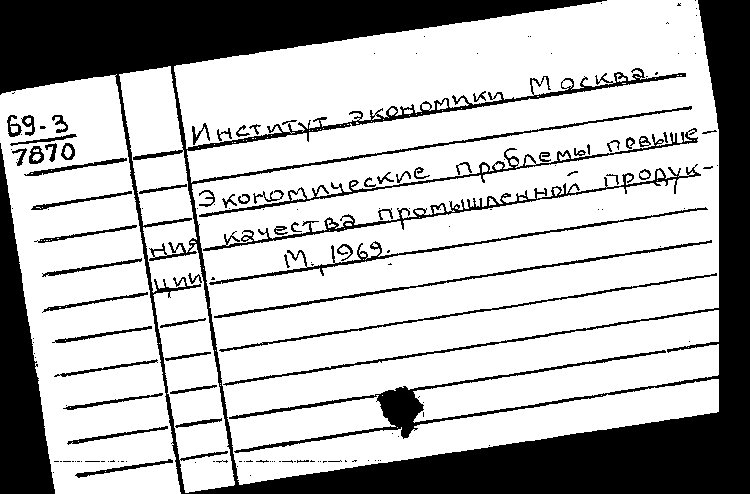 69-3
7870
Институт экономики. Москва.
Экономические проблемы повыше-
ния качества промышленной продук-
ции. М., 1969.